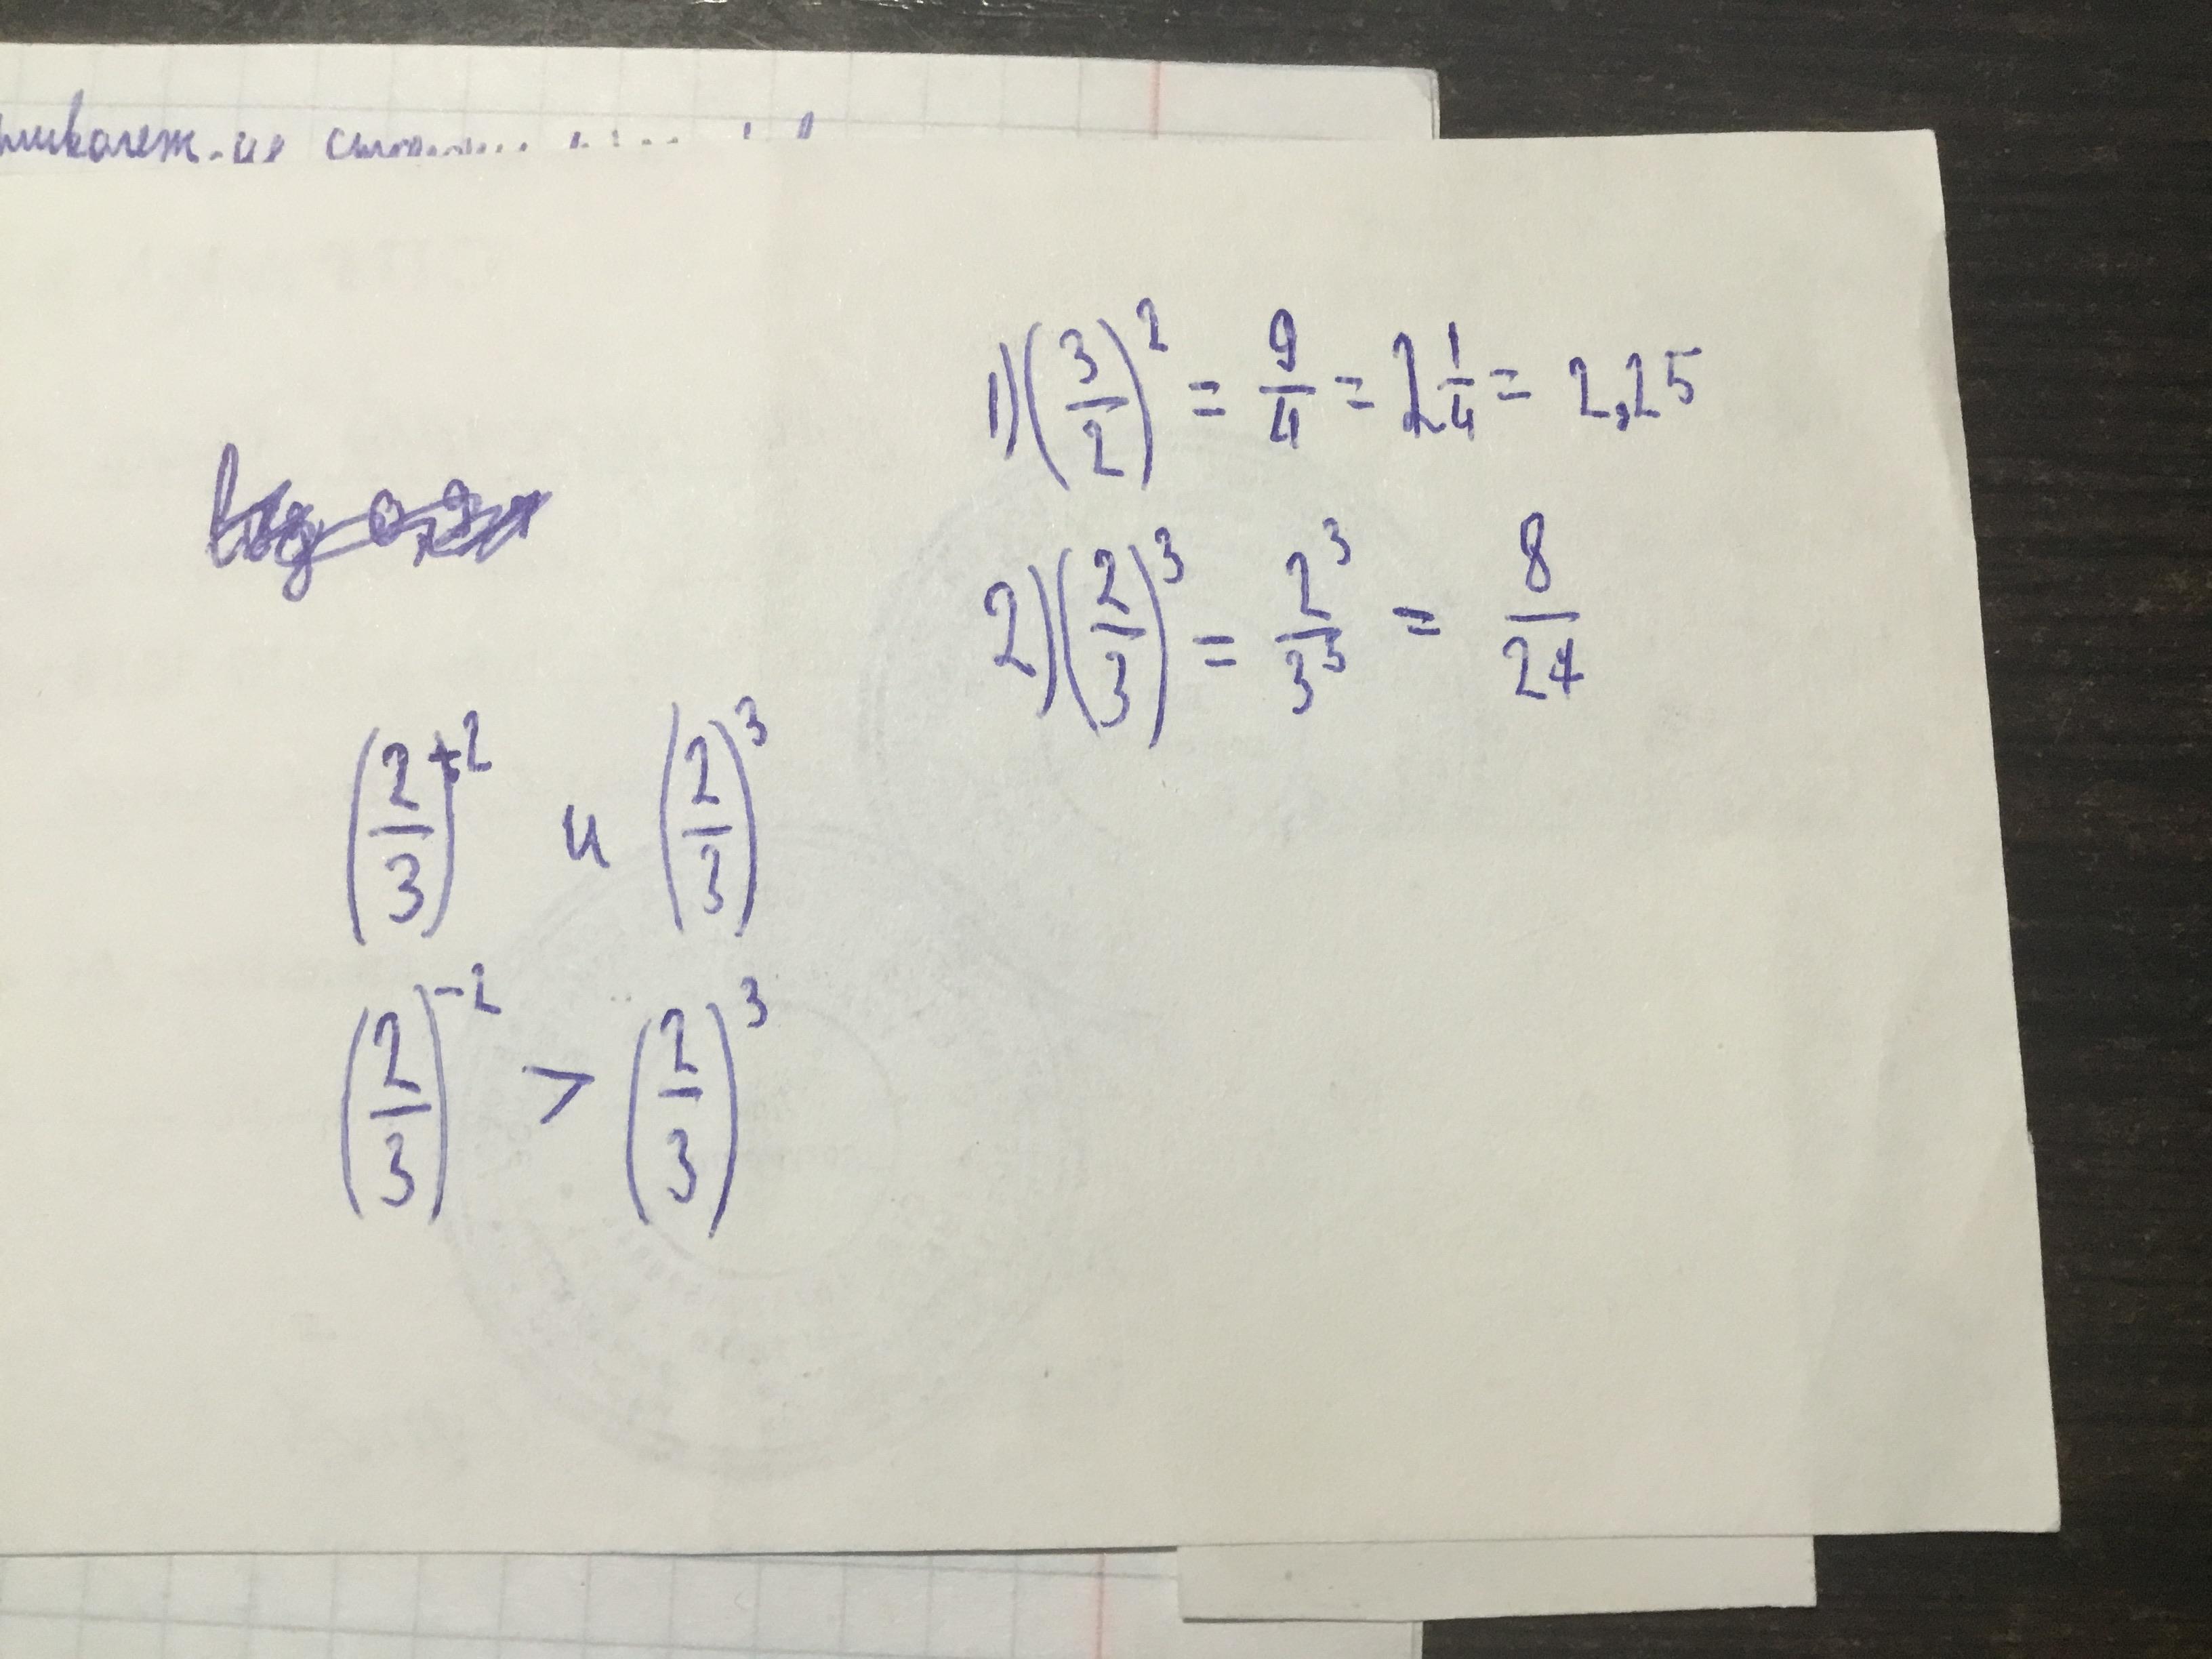 1) (3/2)^2 = 9/4 = 2 1/4 = 2,25
2) (2/3)^3 = 2^3/3^3 = 8/27
(2/3)^-2 и (2/3)^3
(2/3)^-2 > (2/3)^3